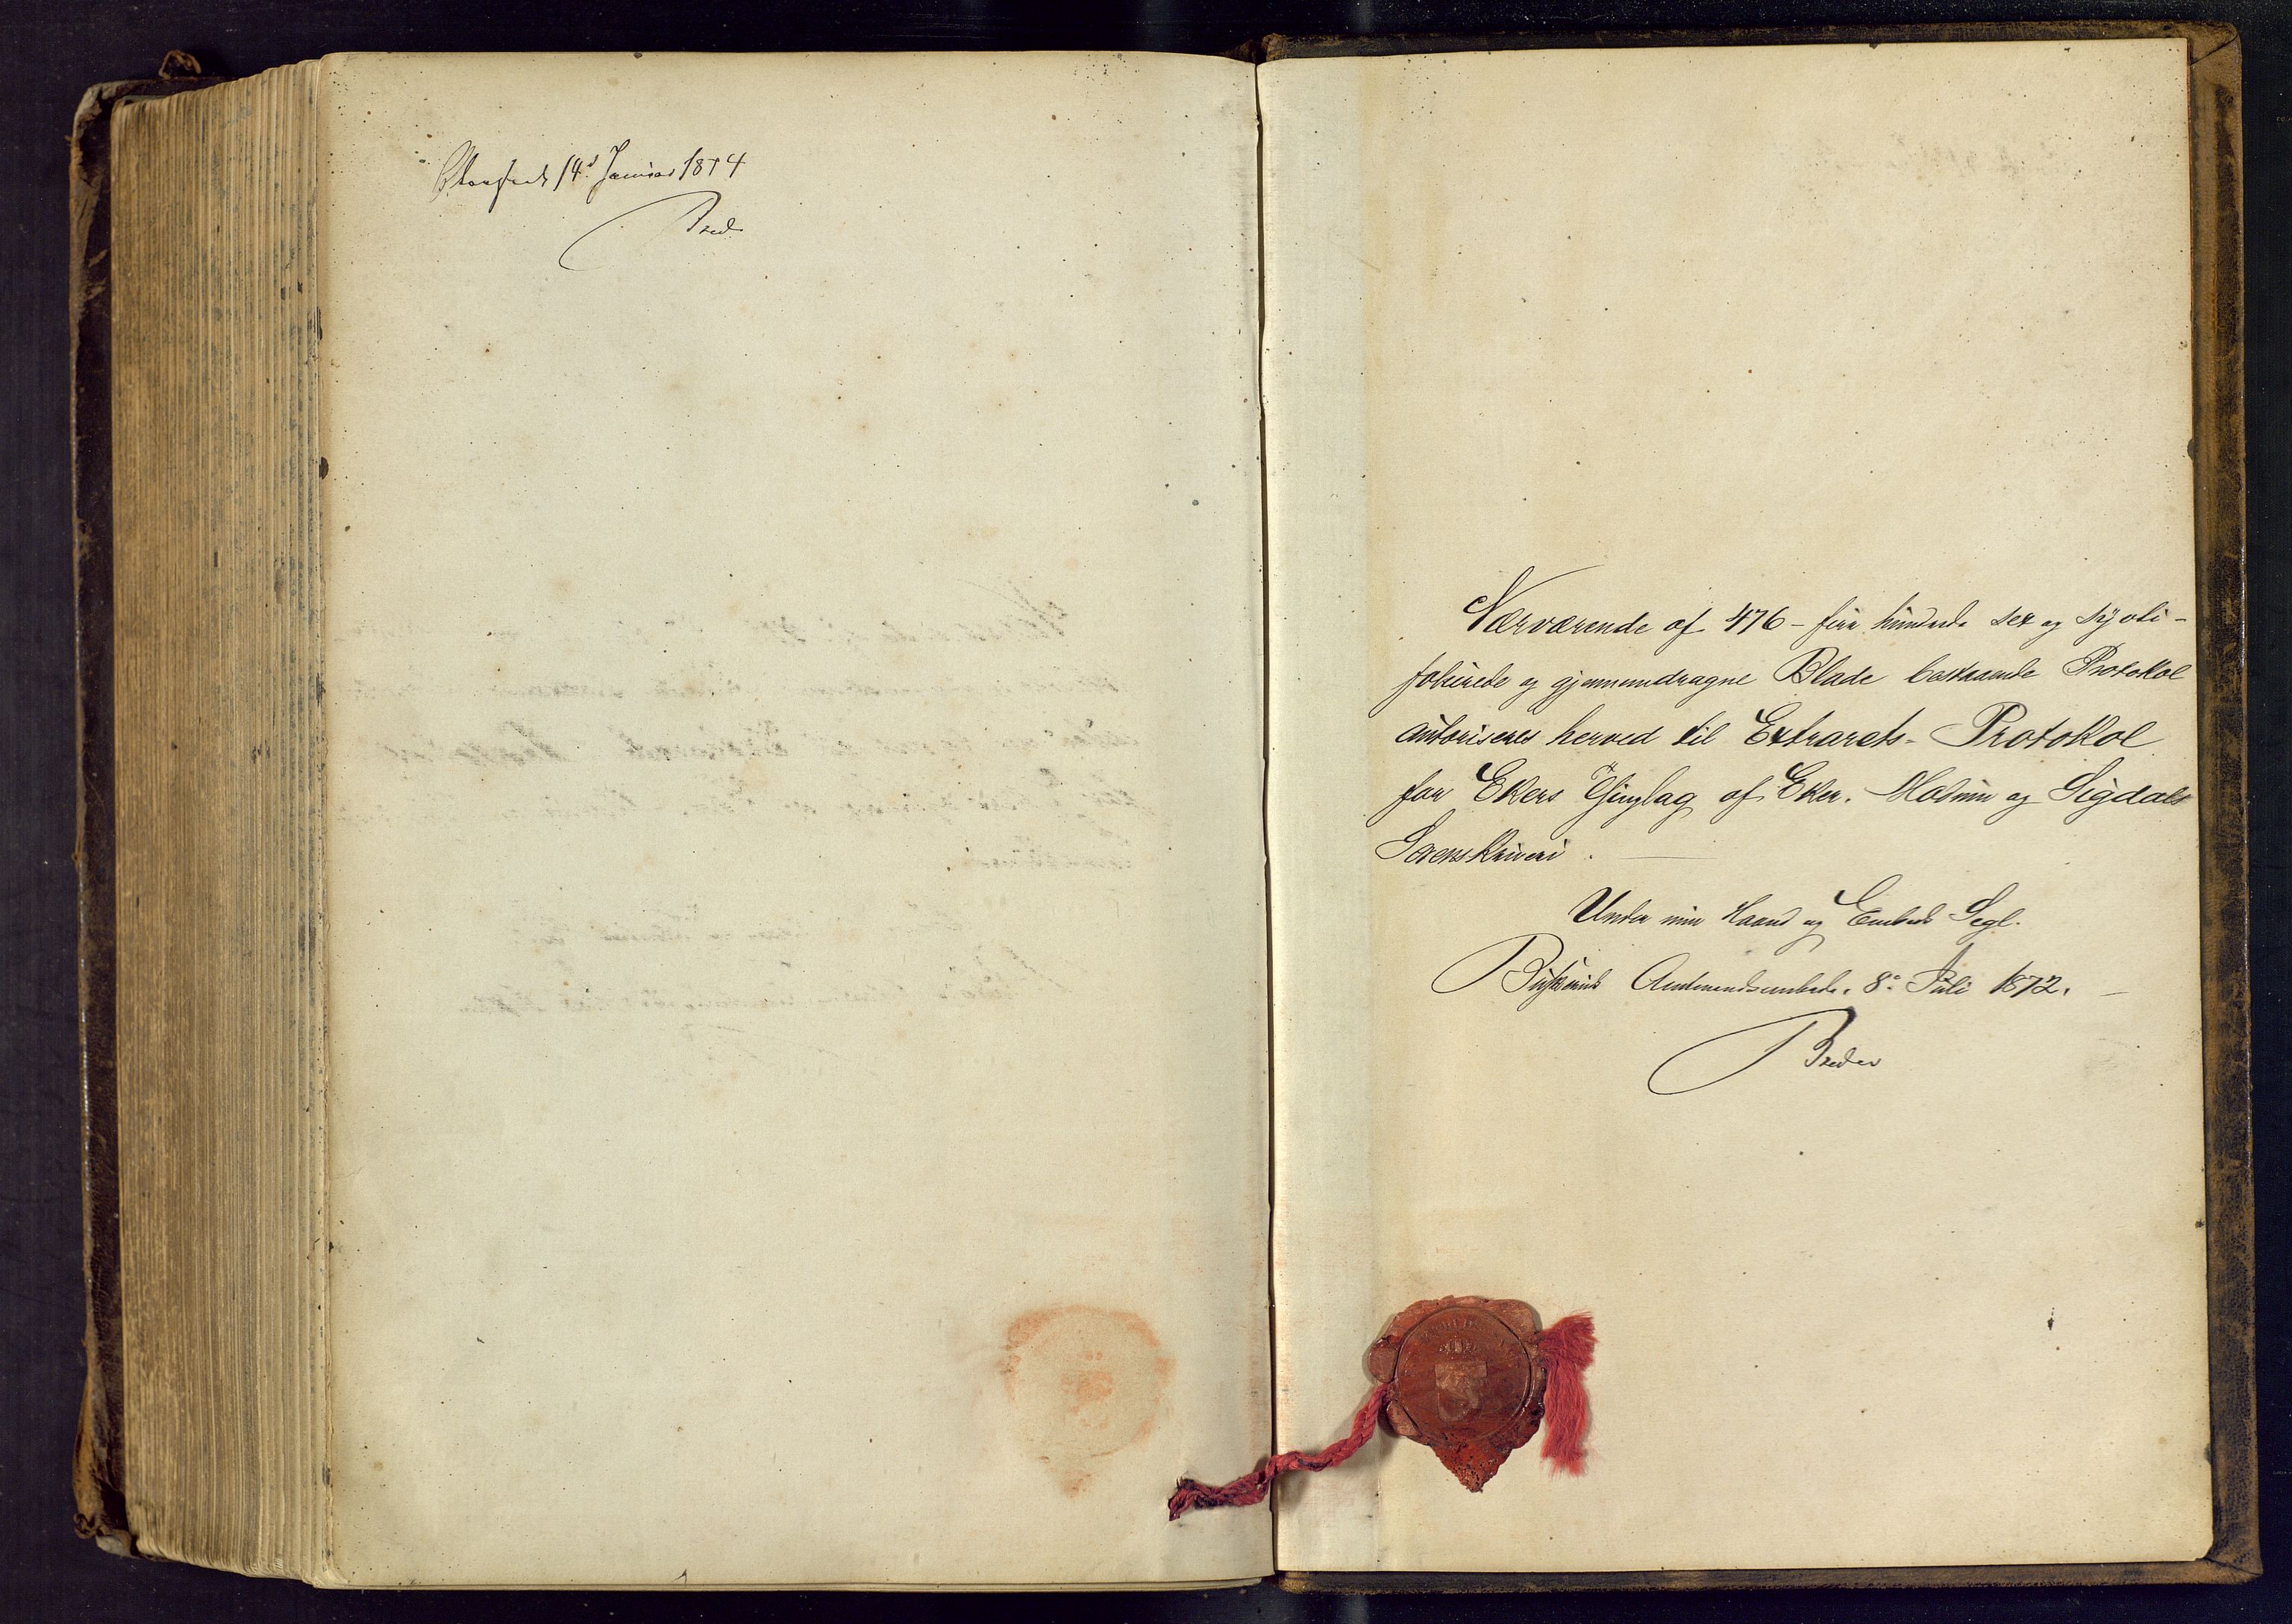 14d Januar 1874
Bred
Nærværende af 476 - fire hundrede sex og syvti -
folierede og gjennemdragne Blade bestaaende Protokol
autoriseres herved til Extrarets-Protokol
for Ekers Thinglag af Eker, Modum og Sigdals
Sorenskriveri.
Under min Haand og Embeds Segl.
Buskeruds Amtmandsembede, 8de Juli 1872.
Breder